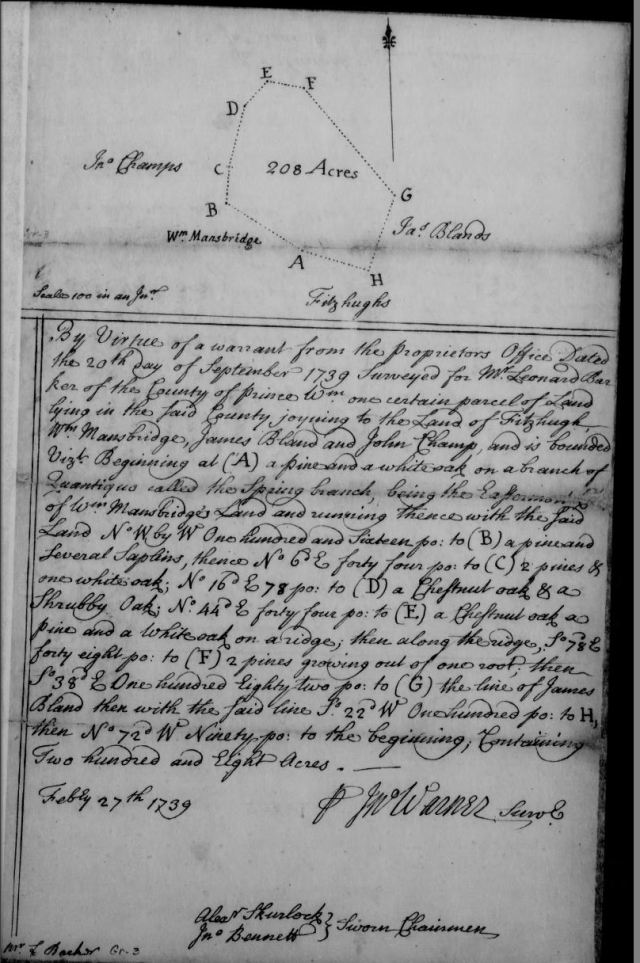 E F
D
Jno Champs C 208 Acres
B G
Wm Mansbridge Jas Blands
A
H
Scale 100 in an In.
Fitzhughs
By Virtue of a warrant from the Proprietors Office Dated
the 20th day of September 1739 Surveyed for Mr Leonard Bar
ker of the County of Prince Wm one certain parcel of Land
lying in the said County joyning to the Land of Fitzhugh,
Wm Mansbridge, James Bland and John Champ, and is bounded
Vizt Beginning at (A) a pine and a white oak on a branch of
Quantiquo called the Spring branch, being the
of Wm Mansbridges Land and running thence with the said
Land No W by W One hundred and Sixteen po: to (B) a pine and
Several Saplins, thence No 6d E forty four po: to (C) 2 pines &
one white oak; No 16d E 78 po: to (D) a Chestnut oak & a
Shrubby Oak; No 44d E forty four po: to (E) a Chestnut oak a
pine and a White oak on a ridge; then along the ridge, So 78d E
forty eight po: to (F) 2 pines growing out of one root; then
So 38d E One hundred Eighty two po: to (G) the line of James
Bland then with the said line So 22d W One hundred po: to H,
then No 72d W Ninety po: to the beginning; Containing
Two hundred and Eight Acres.
Febly 27th 1739
P Jno Warner Survr
Alexr Skurlock } Sworn Chainmen
Jno Bennett
Mr L Barker Gr-3